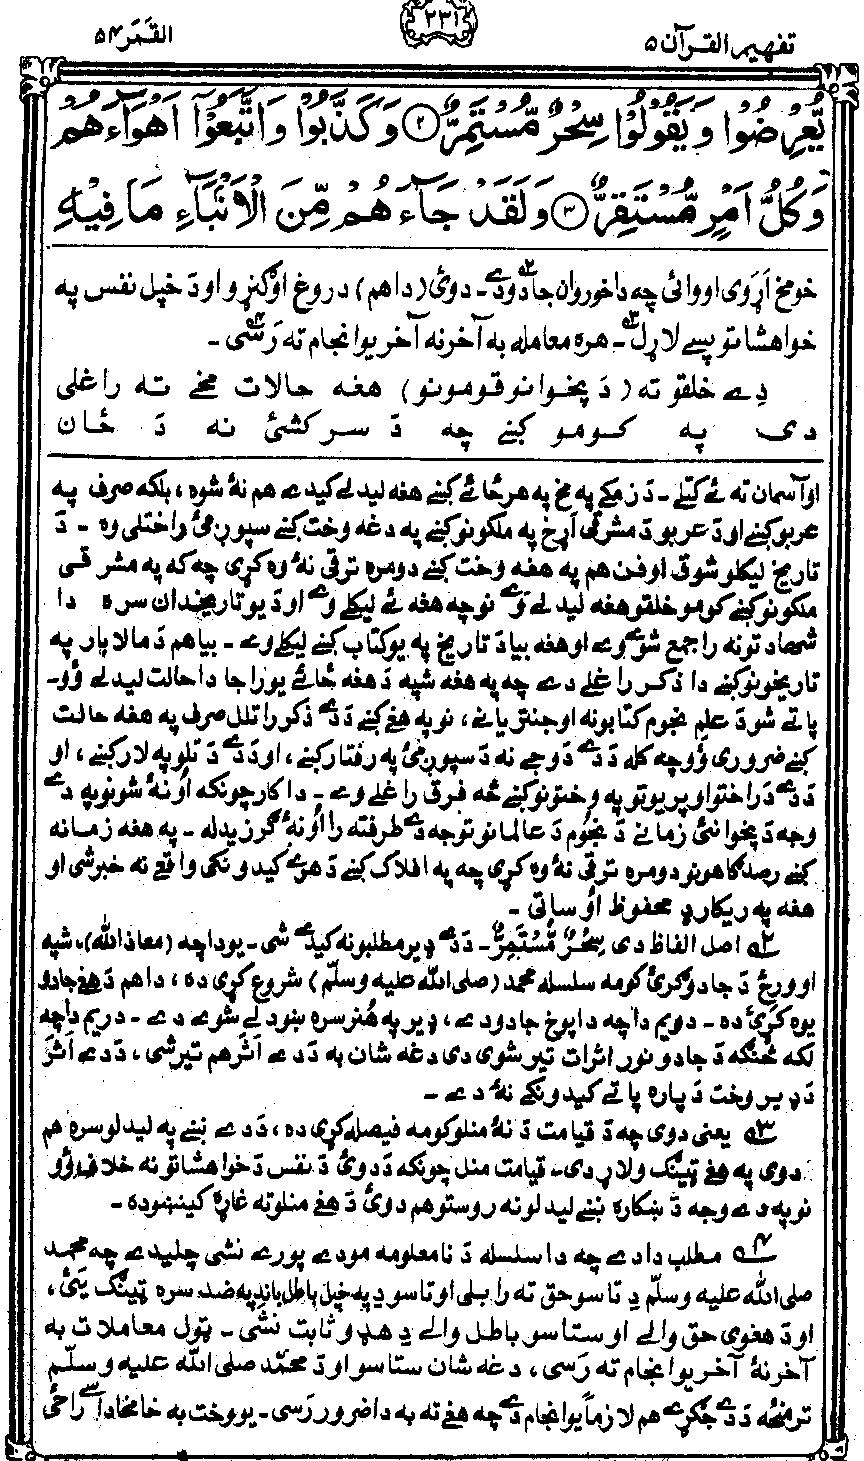 تفهيم القرآن ۵
۲۳۱
القَمَر ۵۴
يُّعْرِضُوْا وَ يَقُوْلُوْا سِحْرٌ مُّسْتَمِرٌّ ۝۲ وَ كَذَّبُوْا وَ اتَّبَعُوْٓا اَهْوَآءَهُمْ
وَ كُلُّ اَمْرٍ مُّسْتَقِرٌّ ۝۳ وَ لَقَدْ جَآءَهُمْ مِّنَ الْاَنْۢبَآءِ مَا فِيْهِ
خو مخ اَړَوی او وائی چه دا خو روان جادو دے۲ـ دوئ (دا هم) دروغ اوګنړو او دَ خپل نفس په
خواهشاتو پسے لاړل۳ـ هره معامله به آخر نه آخر یو انجام ته رَسی۴ ـ
دے خلقو ته (دَ پخوانو قومونو) هغه حالات مخے ته راغلی
دی په کومو کښے چه دَ سرکشئ نه دَ ځان
او آسمان ته ئے کتلے ـ دَ زمکے په مخ په هر ځائے کښے هغه لیدلے کیدے هم نۀ شوه ، بلکه صرف په
عربو کښے او دَ عربو دَ مشرقی اَړخ په ملکونو کښے په دغه وخت کښے سپوږمئ راختلی وه ـ دَ
تاریخ لیکلو شوق او فن هم په هغه وخت کښے دومره ترقی نۀ وه کړی چه که په مشرقی
ملکونو کښے کومو خلقو هغه لیدلے وَے نو چه هغه ئے لیکلے وَے او دَ یو تاریخدان سره دا
شهادتونه راجمع شوی وے او هغه بیا دَ تاریخ په یو کتاب کښے لیکلے وے ـ بیا هم دَ مالابار په
تاریخونو کښے دا ذکر راغلے دے چه په هغه شپه دَ هغه ځائے یو راجا دا حالت لیدلے وُو ـ
پاتے شو دَ علم نجوم کتابونه او جنتریانے ، نو په هغے کښے دَ دے ذکر راتلل صرف په هغه حالت
کښے ضروری وُو چه کله دَ دے دَ وجے نه دَ سپوږمئ په رفتار کښے ، او دَ دے دَ تلو په لار کښے ، او
دَ دے دَ راختو او پریوتو په وختونو کښے څه فرق راغلے وے ـ دا کار چونکه اونۀ شو نو په دے
وجه دَ پخوانئ زمانے دَ نجوم دَ عالمانو توجه دے طرف ته را اونۀ ګرزیدله ـ په هغه زمانه
کښے رصدګاهونو دومره ترقی نۀ وه کړی چه په افلاک کښے دَ هرے کیدونکی واقعے نه خبر شی او
هغه په ریکارډ محفوظ اوساتی ـ
۲ اصل الفاظ دی سِحْرٌ مُّسْتَمِرٌّ ـ دَ دے ډیر مطلبونه کیدے شی ـ یو دا چه (معاذالله) ، شپه
او ورځ دَ جادوګرئ کومه سلسله محمد (صلی الله علیه وسلّم) شروع کړی ده ، دا هم دَ هغے جادو
یوه کړئ ده ـ دویم دا چه دا پوخ جادو دے ، ډیر په هُنر سره ښودلے شوے دے ـ دریم دا چه
لکه څنګه دَ جادو نور اثرات تیر شوی دی دغه شان به دَ دے اَثَر هم تیر شی ، دَ دے اَثَر
دَ ډیر وخت دَ پاره پاتے کیدونکے نۀ دے ـ
۳ یعنی دوی چه دَ قیامت دَ نۀ منلو کومه فیصله کړی ده ، دَ دے نښے په لیدلو سره هم
دوی په هغے ټینګ ولاړ دی ـ قیامت منل چونکه دَ دوئ دَ نفس دَ خواهشاتو نه خلاف وُو
نو په دے وجه دَ ښکاره نښے لیدلو نه روستو هم دوئ دَ هغے منلو ته غاړه کینښوده ـ
۴ مطلب دا دے چه دا سلسله دَ نامعلومه مودے پورے نشی چلیدے چه محمد
صلی الله علیه وسلّم دِ تاسو حق ته رابلی او تاسو دِ په خپل باطل باندِ په ضد سره ټینګ یَئ ،
او دَ هغوی حق والے او ستاسو باطل والے دِ هډو ثابت نشی ـ ټول معاملات به
آخر نۀ آخر یو انجام ته رَسی ، دغه شان ستاسو او دَ محمّد صلی الله علیه وسلّم
ترمنځه دَ دے جګړے هم لازماً یو انجام دے چه هغے ته به دا ضرور رَسی ـ یو وخت به خامخا داسے راځی